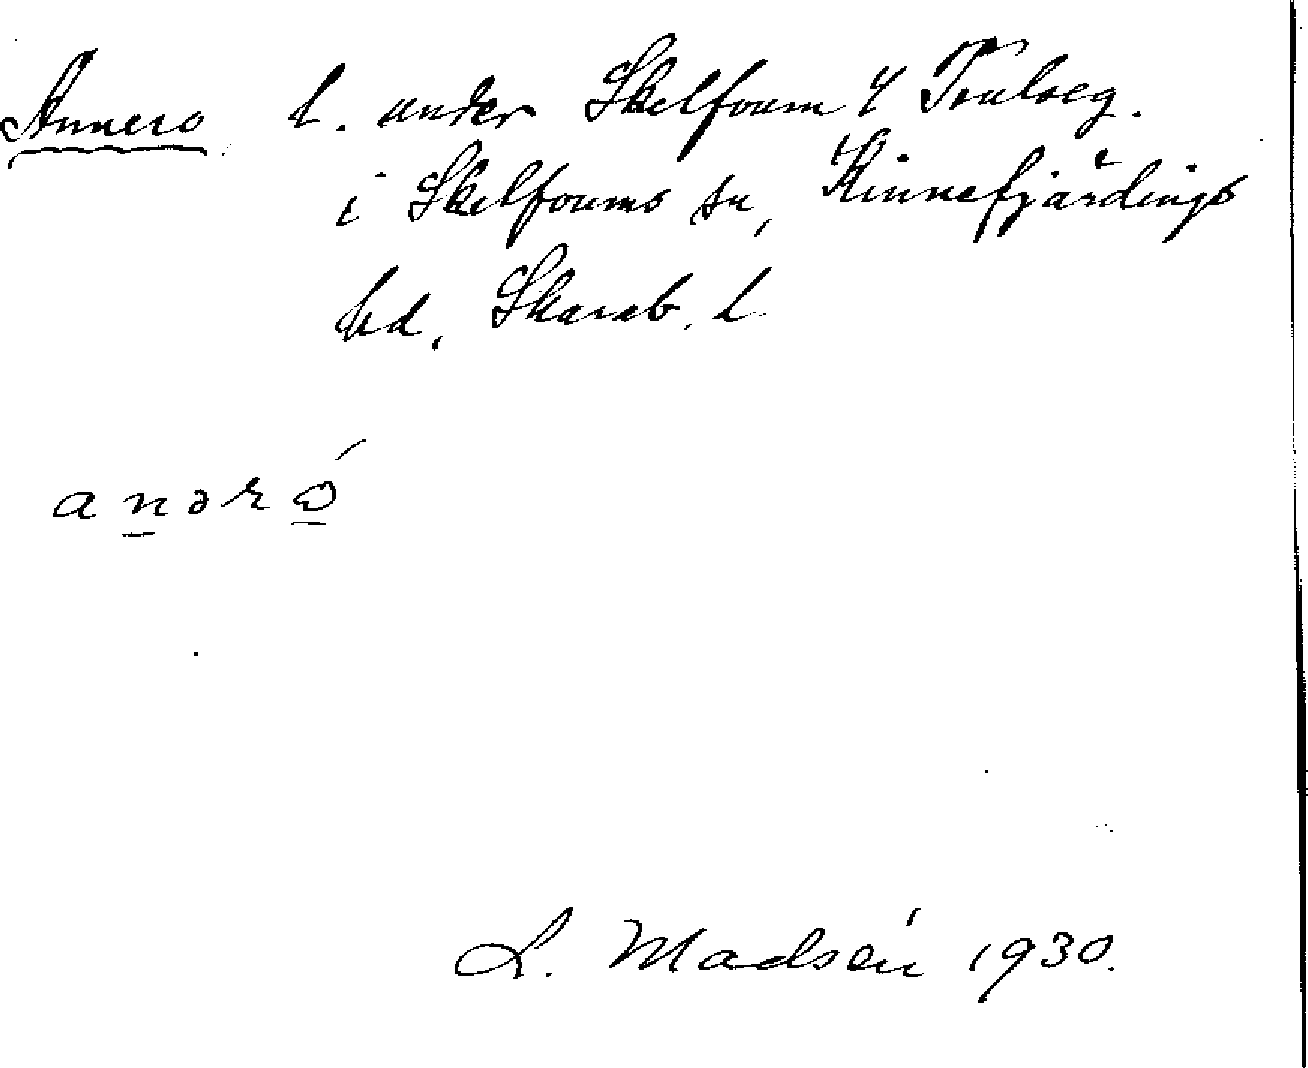 Annero t. under Skelfoum 4 Truloeg.
i Skelfoums sn, Kinnefjärdings
hd. Skarab. l
anəró
L. Madsén 1930.